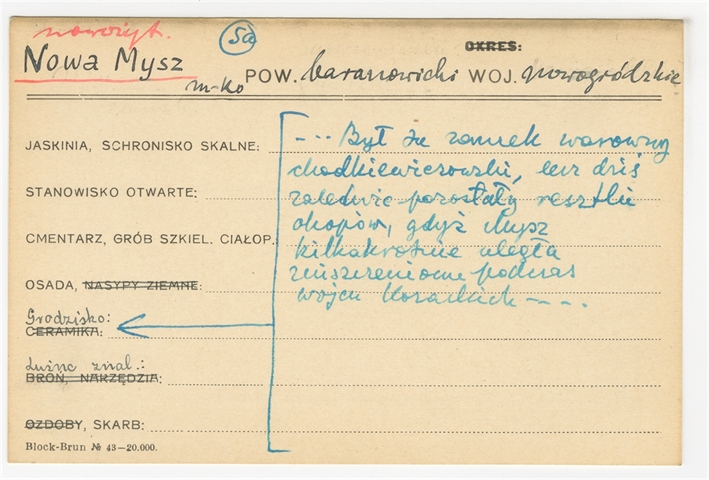 nowożyt. 5a OKRES:
Nowa Mysz
m-ko POW. baranowicki WOJ. nowogródzkie
JASKINIA, SCHRONISKO SKALNE: --- Był tu zamek warowny
chodkiewiczowski, lecz dziś
STANOWISKO OTWARTE: zaledwie pozostały resztki
okopów, gdyż Mysz
CMENTARZ, GRÓB SZKIEL. CIAŁOP. kilkakrotnie uległa
zniszczeniom podczas
OSADA, NASYPY ZIEMNE: wojen kozackich ----
Grodzisko:
CERAMIKA:
Luźne znal.:
BROŃ, NARZĘDZIA:
OZDOBY, SKARB:
Block-Brun № 43—20.000.